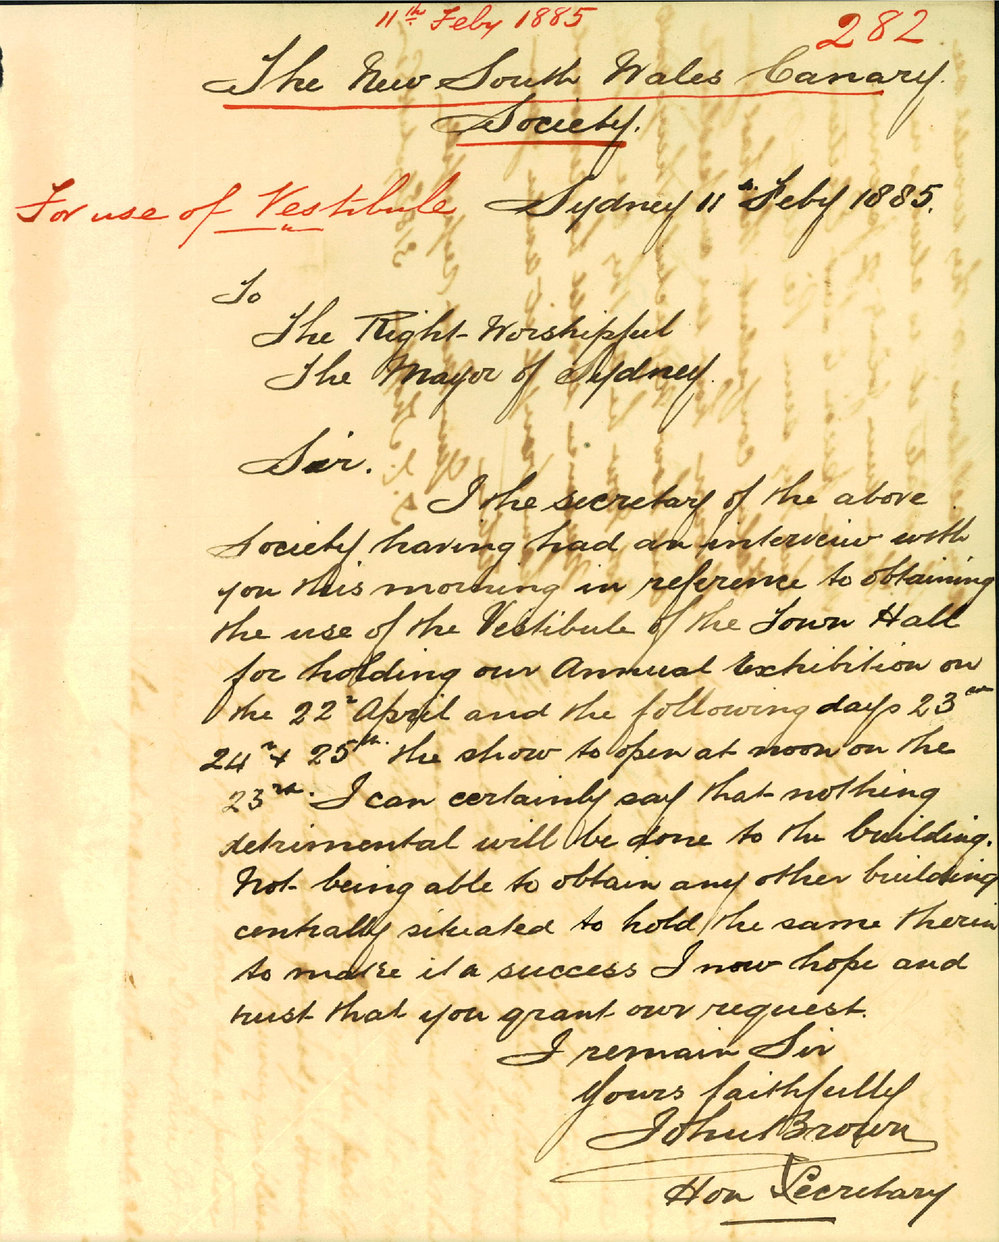 11th Feby 1885
282
The New South Wales Canary
Society.
For use of Vestibule
Sydney 11th Feby 1885.
To
The Right Worshipful
The Mayor of Sydney.
Sir.
I the secretary of the above
Society having had an interveiw with
you this morning in reference to obtaining
the use of the Vestibule of the Town Hall
for holding our Annual Exhibition on
the 22n April and the following days 23
24 & 25th. the show to open at noon on the
23rd. I can certainly say that nothing
detrimental will be done to the building.
Not being able to obtain any other building
centrally situated to hold the same therein
to make it a success I now hope and
trust that you grant our request.
I remain Sir
Yours faithfully
John Brown
Hon Secretary